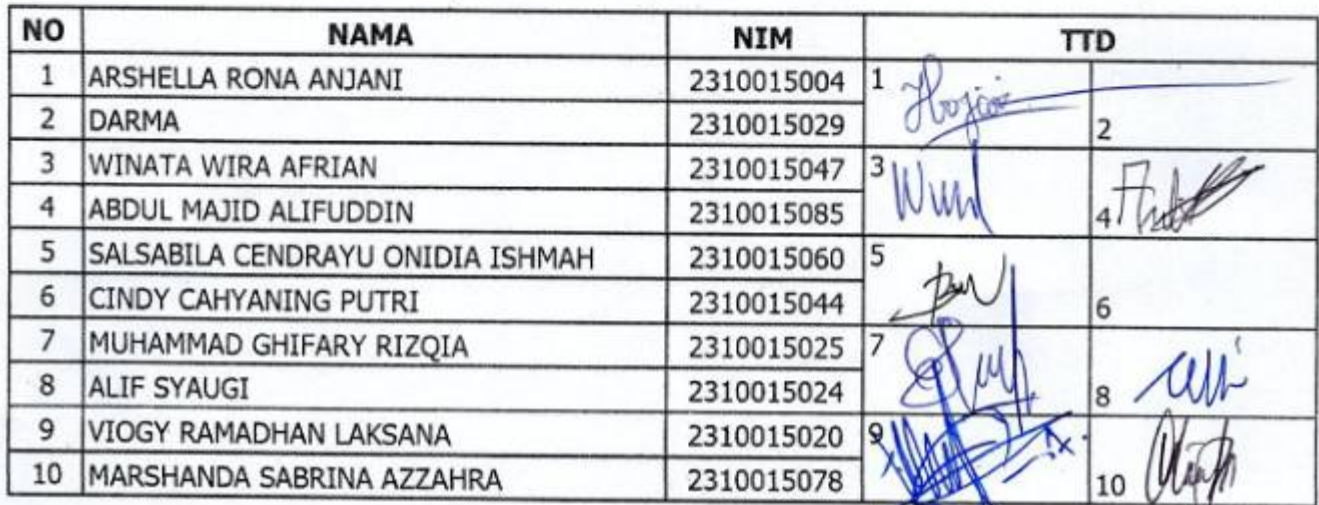 NO NAMA NIM TTD
1 ARSHELLA RONA ANJANI 2310015004 1
2 DARMA 2310015029 2
3 WINATA WIRA AFRIAN 2310015047 3
4 ABDUL MAJID ALIFUDDIN 2310015085 4
5 SALSABILA CENDRAYU ONIDIA ISHMAH 2310015060 5
6 CINDY CAHYANING PUTRI 2310015044 6
7 MUHAMMAD GHIFARY RIZQIA 2310015025 7
8 ALIF SYAUGI 2310015024 8
9 VIOGY RAMADHAN LAKSANA 2310015020 9
10 MARSHANDA SABRINA AZZAHRA 2310015078 10